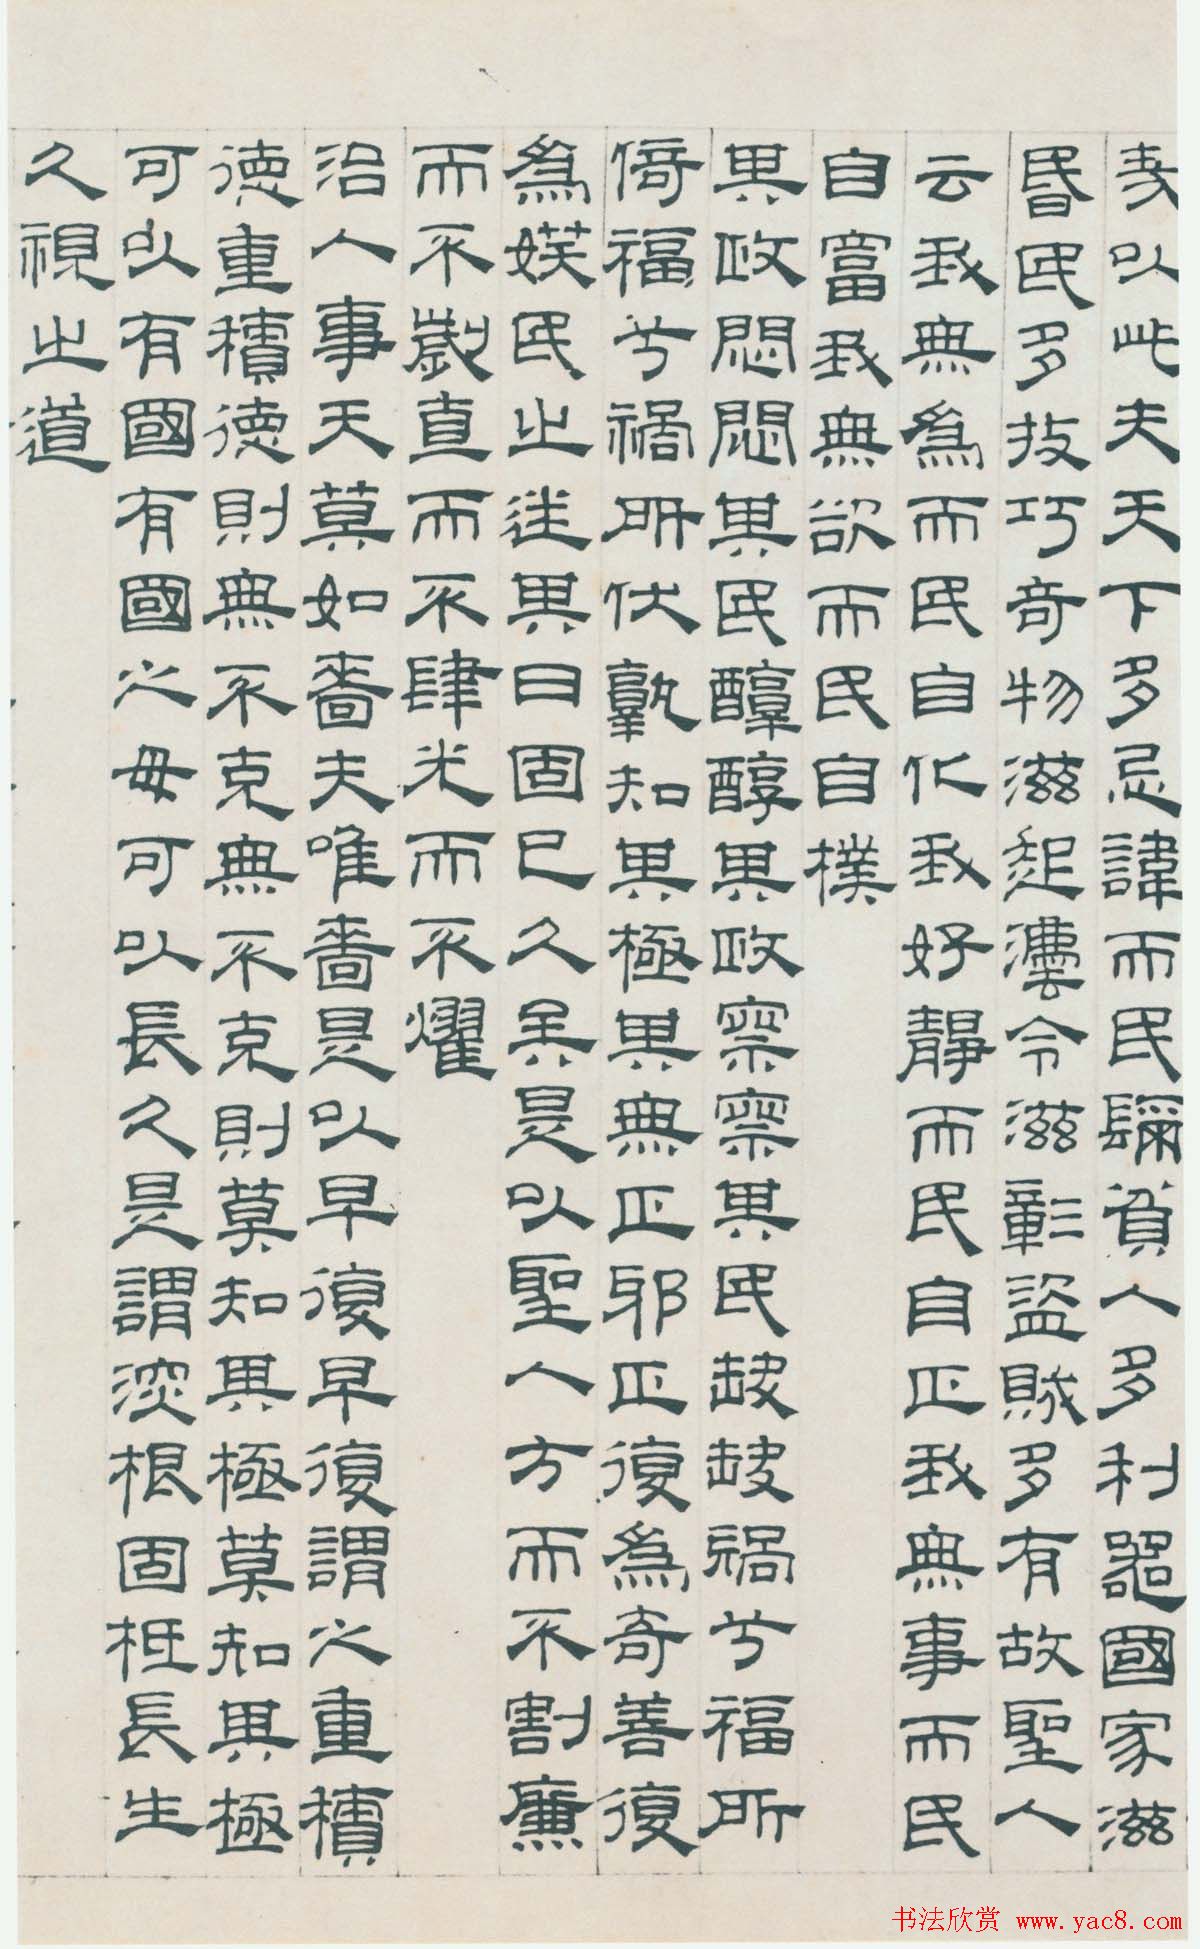 哉以此夫天下多忌諱而民彌貧人多利器國家滋
昏民多技巧奇物滋起法令滋彰盜賊多有故聖人
云我無為而民自化我好靜而民自正我無事而民
自富我無欲而民自樸
其政悶悶其民醇醇其政察察其民缺缺禍兮福所
倚福兮禍所伏孰知其極其無正邪正復為奇善復
為娱民之迷其日固已久矣是以聖人方而不割廉
而不劌直而不肆光而不耀
治人事天莫如嗇夫唯嗇是以早復早復謂之重積
德重積德則無不克無不克則莫知其極莫知其極
可以有國有國之母可以長久是謂深根固柢長生
久視之道
书法欣赏 www.yac8.com